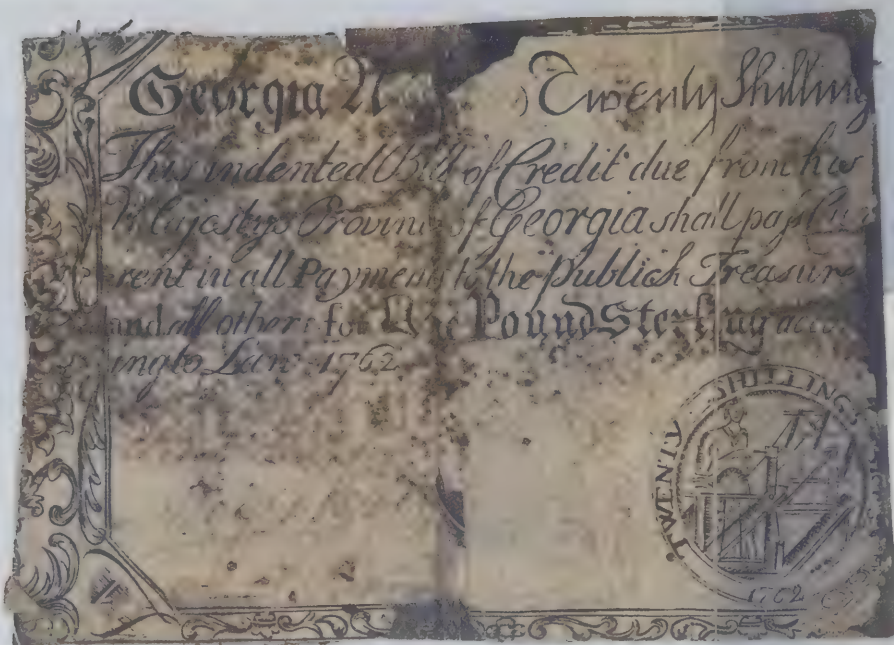 Georgia N ) Twenty Shilling
This indented Bill of Credit due from his
Majestys Province of Georgia shall pass Cur
rent in all Payments to the Publick Treasure
and all others for One Pound Sterling acco
ing to Law 1762
TWENTY SHILLINGS
1762